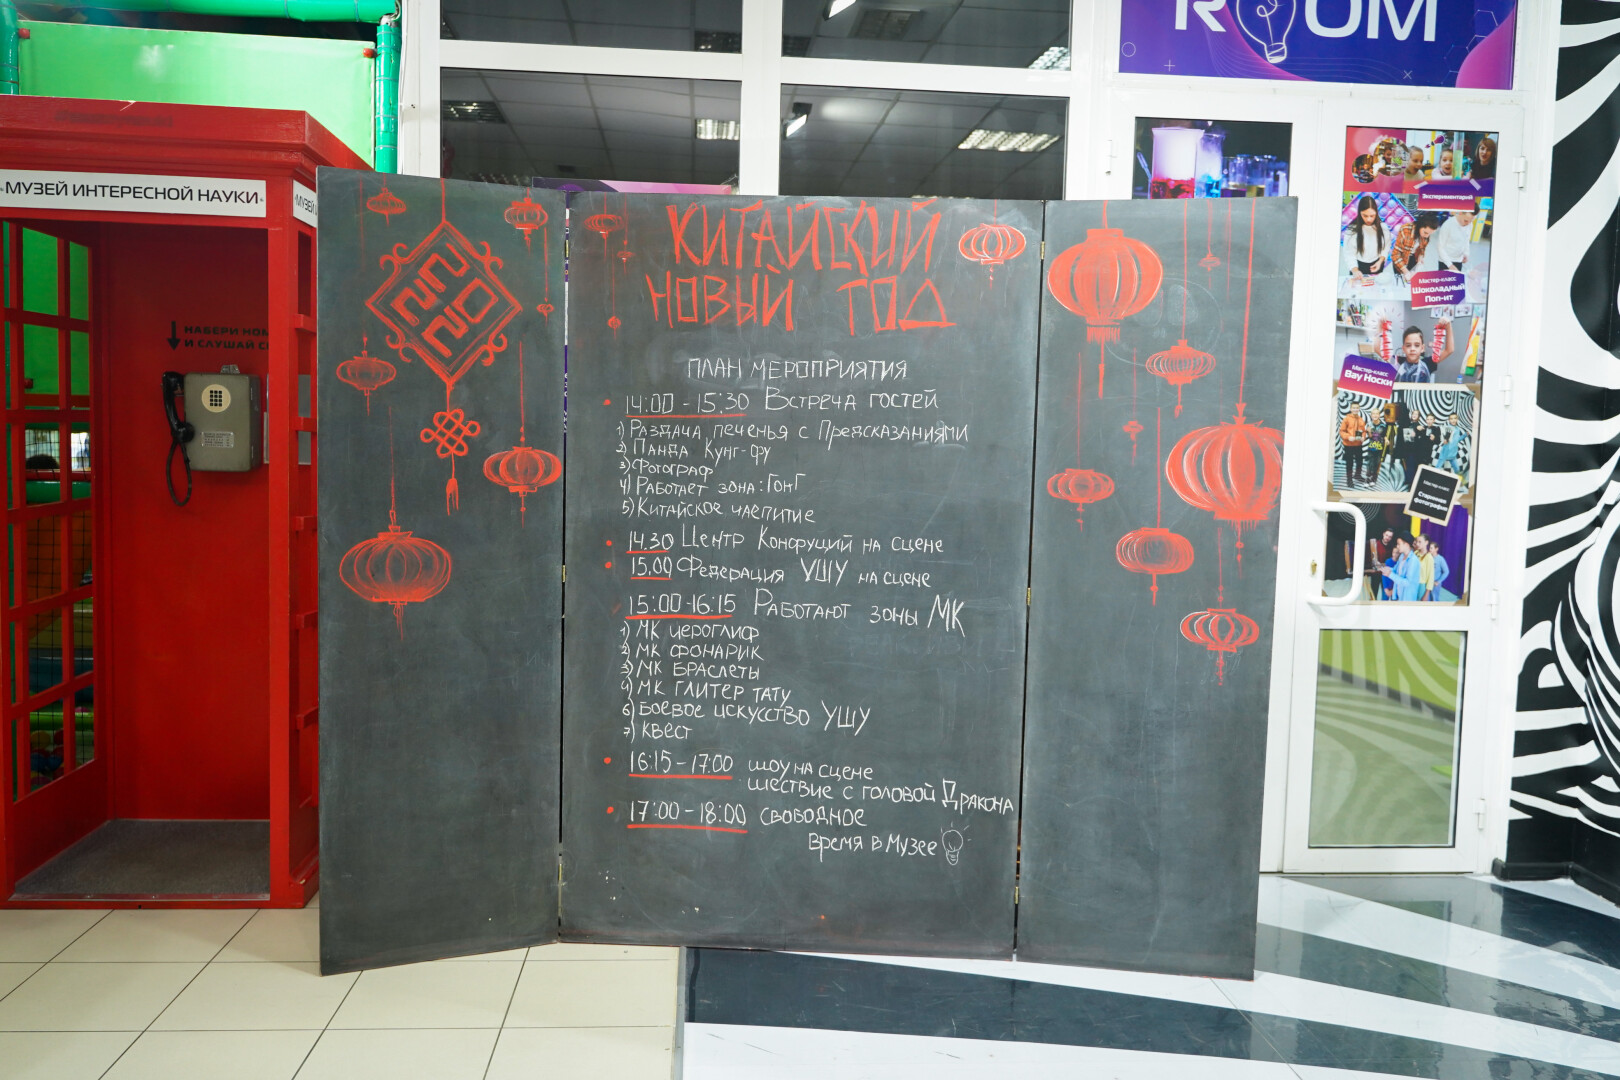 ROOM
«МУЗЕЙ ИНТЕРЕСНОЙ НАУКИ»
«МУЗЕЙ
НАБЕРИ НОМ
И СЛУШАЙ
2022
КИТАЙСКИЙ
НОВЫЙ ГОД
ПЛАН МЕРОПРИЯТИЯ
• 14:00 - 15:30 Встреча гостей
1) Раздача печенья с Предсказаниями
2) Панда Кунг-фу
3) Фотограф
4) Работает зона: Гонг
5) Китайское чаепитие
• 14.30 Центр Конфуций на сцене
• 15.00 Федерация УШУ на сцене
15:00 - 16:15 Работают зоны МК
1) МК иероглиф
2) МК фонарик
3) МК браслеты
4) МК глитер тату
6) Боевое искусство УШУ
7) Квест
• 16:15 - 17:00 шоу на сцене
шествие с головой Дракона
• 17:00 - 18:00 свободное
время в Музее
Экспериментарий
Мастер-класс
Шоколадный
Поп-ит
Мастер-класс
Вау Носки
Мастер-класс
Старинная
фотография